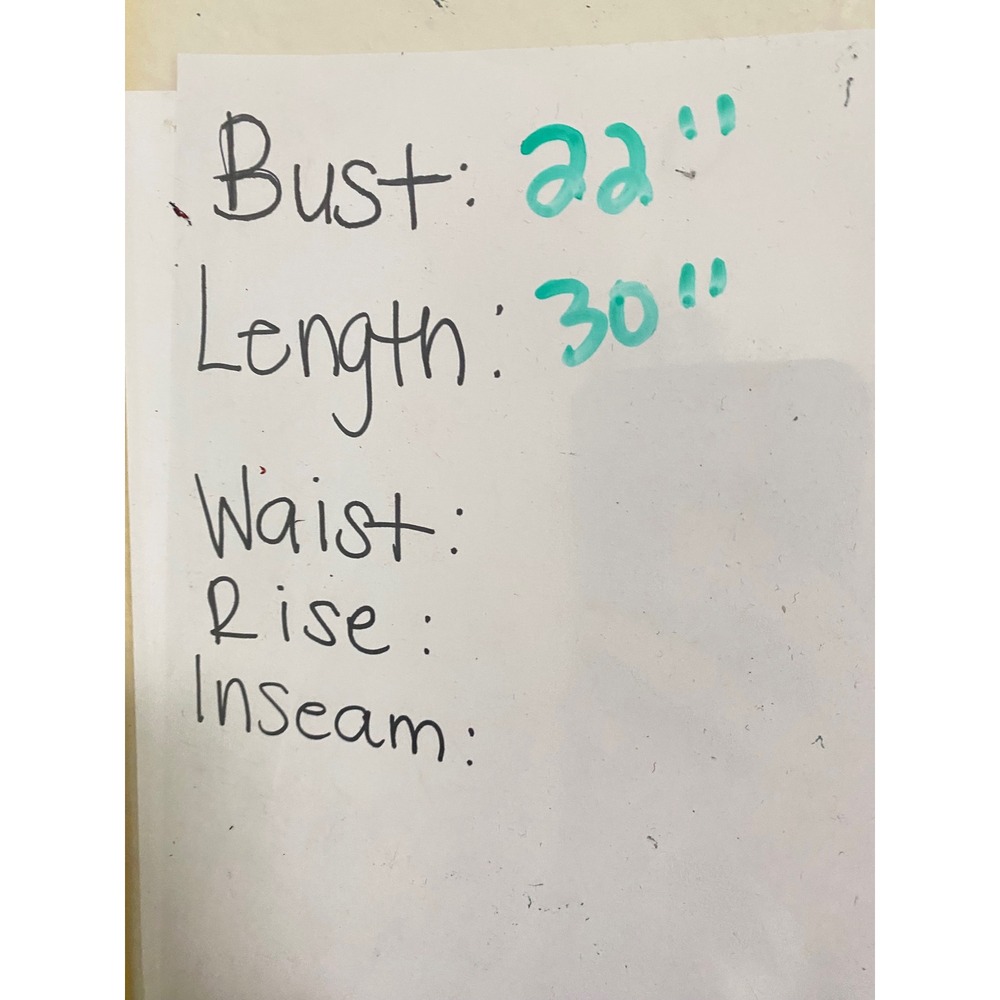 Bust: 22"
Length: 30"
Waist:
Rise:
Inseam: